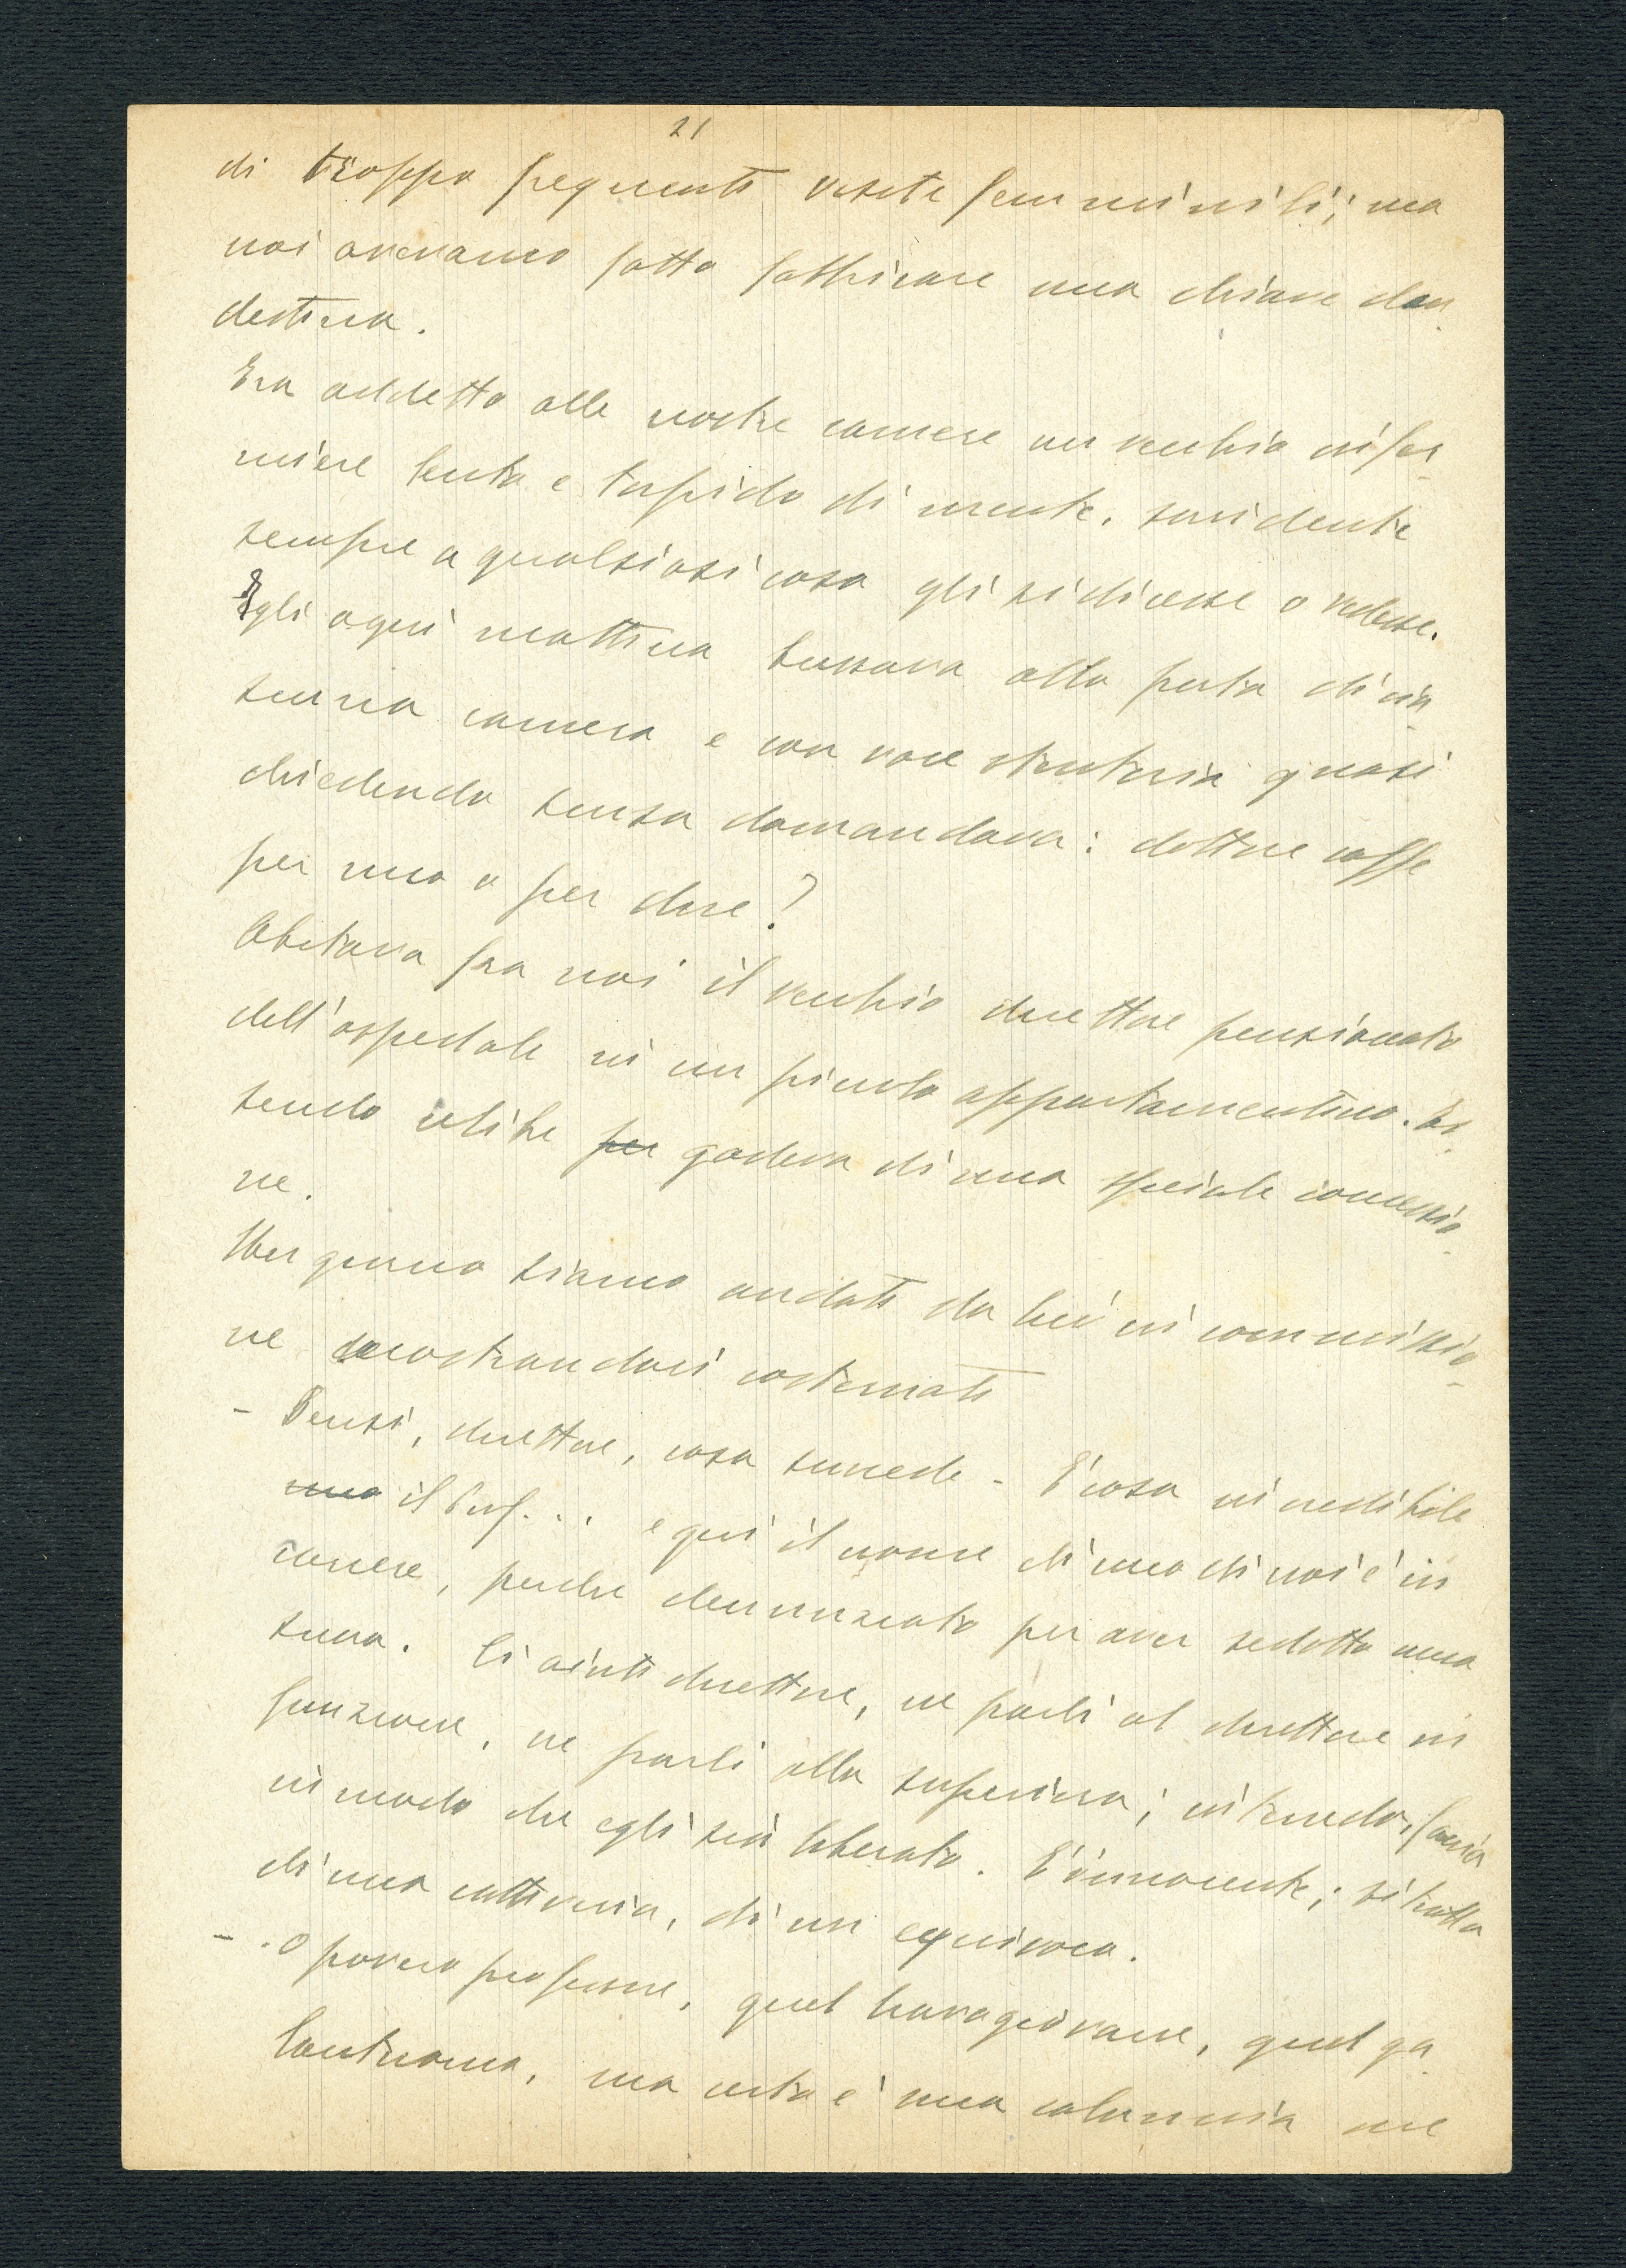 21
di troppo frequenti visite femminili; ma
noi avevamo fatto fabbricare una chiave clan
destina.
Era addetto alle nostre camere un vecchio infer
miere lento e torpido di mente, sorridente
sempre a qualsiasi cosa gli si dicesse o vedesse.
Egli ogni mattina bussava alla porta di cia
scuna camera e con voce stentorea quasi
chiedendo scusa domandava: dottore caffe
per uno o per due?
Abitava fra noi il vecchio direttore pensionato
dell'ospedale in un piccolo appartamentino. Es
sendo celibe per godeva di una speciale concessio
ne.
Un giorno siamo andati da lui in commissio-
ne mostrandoci costernati
- Pensi, direttore, cosa succede - E' cosa incredibile
uno il Prof... e qui il nome di uno di noi è in
carcere, perchè denunziato per aver sedotto una
suora. Ci aiuti direttore, ne parli al direttore in
funzione, ne parli alla superiora; intervenga, faccia
in modo che egli sia liberato. E' innocente; si tratta
di una cattiveria, di un equivoco.
- O povero professore, quel bravo giovane, quel ga
lantuomo, ma certo è una calunnia ne